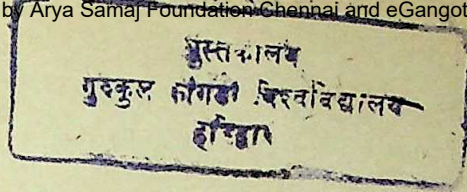 by Arya Samaj Foundation Chennai and eGangot
पुस्तकालय
गुरुकुल काँगड़ी विश्वविद्यालय
हरिद्वार